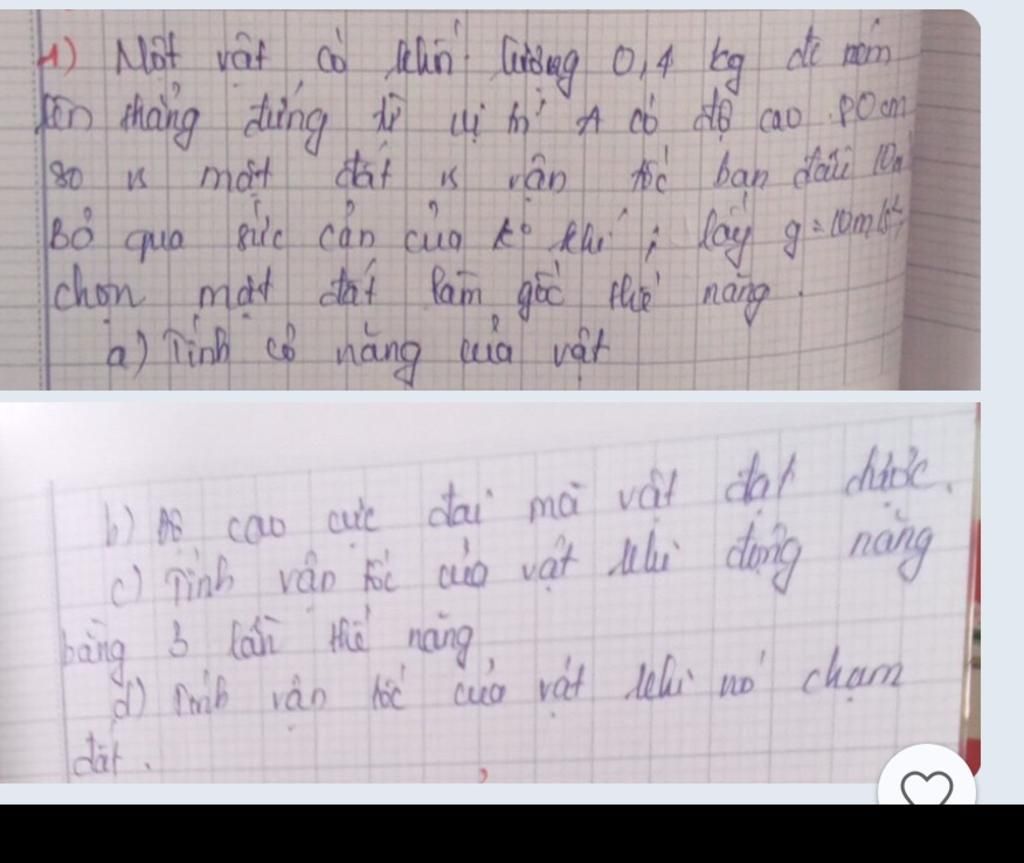 1) Một vật có khối lượng 0,4 kg đc ném
lên thẳng đứng từ vị trí A có độ cao 80cm
so vs mặt đất vs vận tốc ban đầu 10m
Bỏ qua sức cản của k° khí ; lấy g = 10m/s²,
chọn mặt đất làm gốc thế năng.
a) Tính cơ năng của vật
b) Độ cao cực đại mà vật đạt được.
c) Tính vận tốc của vật khi động năng
bằng 3 lần thế năng
d) Tính vận tốc của vật khi nó chạm
đất.